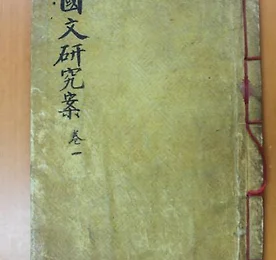 國文研究案 卷一